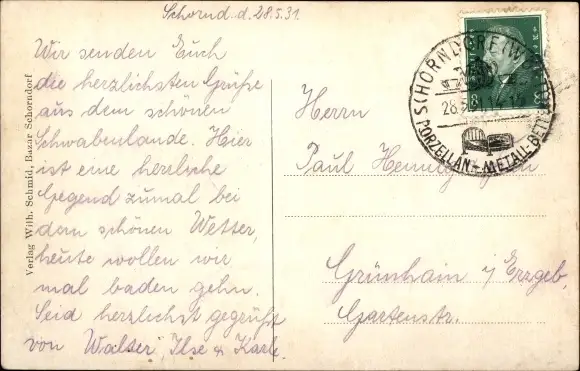 Schornd. d. 28.5.31.
Wir senden Euch
die herzlichsten Grüße
aus dem schönen
Schwabenlande. Hier
ist eine herrliche
Gegend zumal bei
dem schönen Wetter,
heute wollen wir
mal baden gehn.
Seid herzlichst gegrüßt
von Walter, Ilse & Karl.
Verlag Wilh. Schmid, Bazar Schorndorf
SCHORNDORF (W
28.5.31.14-15
PORZELLAN-METALL-BETT
8
8
Herrn
Paul
Grünhain i/ Erzgeb,
Gartenstr.